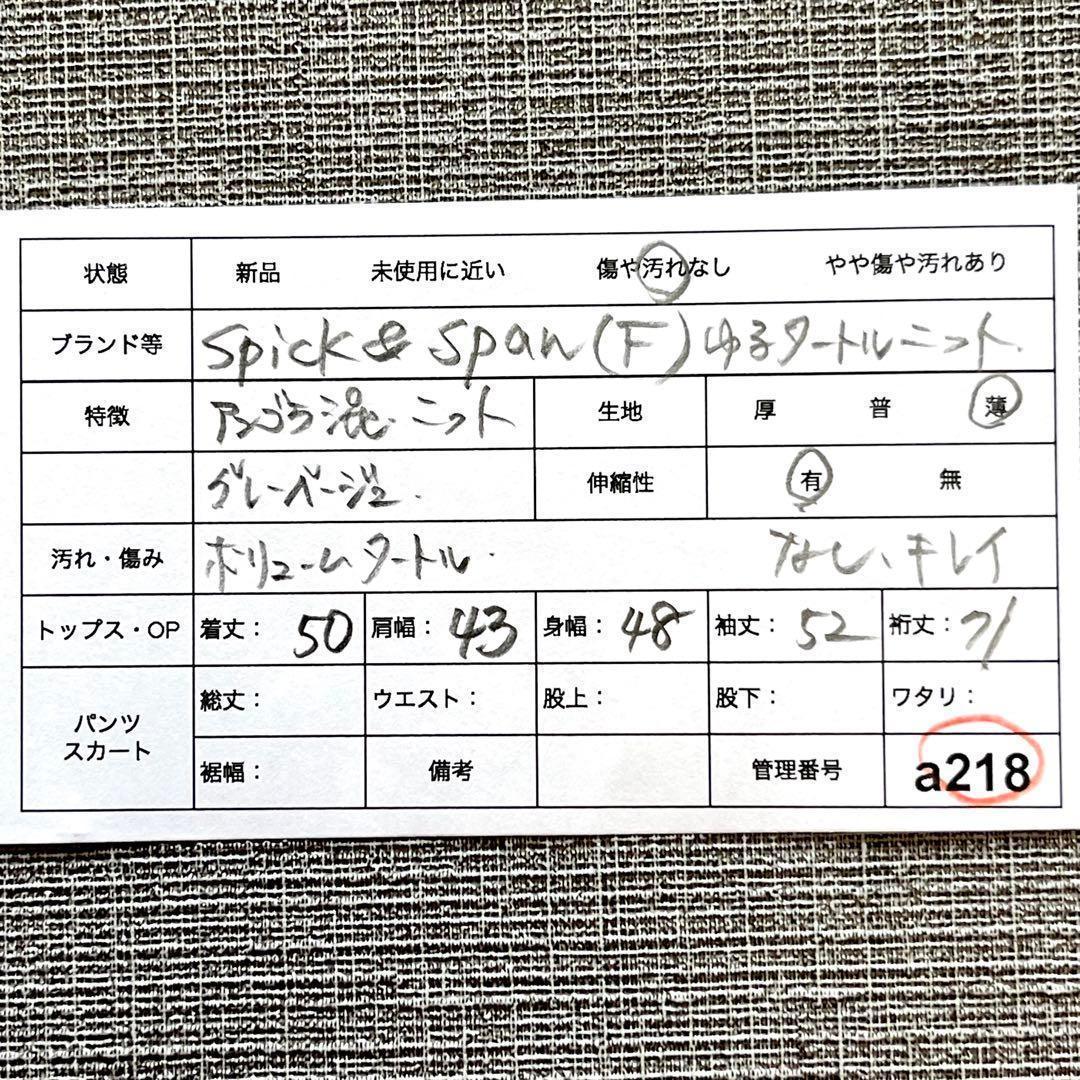 状態 新品 未使用に近い 傷や汚れなし やや傷や汚れあり
ブランド等 Spick & Span (F) ゆるタートルニット.
特徴 アンゴラ混. ニット 生地 厚 普 薄
グレーベージュ. 伸縮性 有 無
汚れ・傷み ボリュームタートル. なし、キレイ
トップス・OP 着丈: 50 肩幅: 43 身幅: 48 袖丈: 52 裄丈: 71
パンツ
スカート
総丈: ウエスト: 股上: 股下: ワタリ:
裾幅: 備考 管理番号 a218